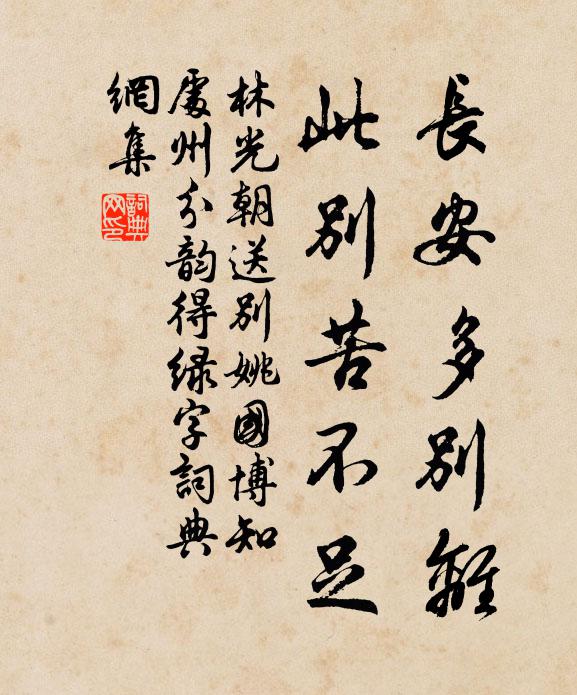 長安多別離
此別苦不足
林光朝送別姚國博知
處州分韵得緑字詞典
網集
詞典網印